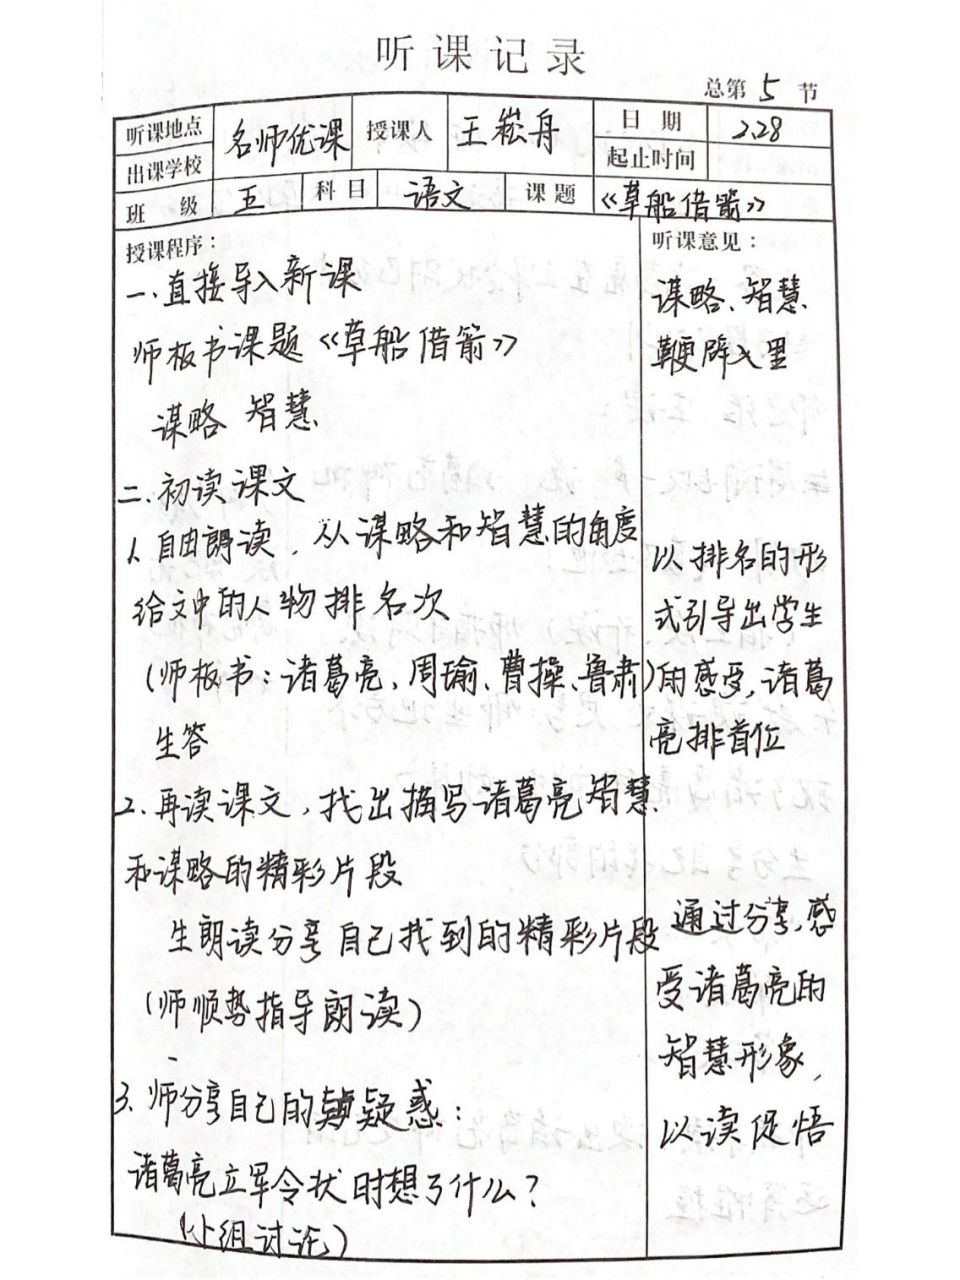 听课记录
总第 5 节
听课地点 名师优课 授课人 王崧舟 日期 2.28
出课学校 起止时间
班级 五 科目 语文 课题 《草船借箭》
授课程序：
一、直接导入新课
师板书课题《草船借箭》
谋略 智慧
二、初读课文
1、自由朗读，从谋略和智慧的角度
给文中的人物排名次
（师板书：诸葛亮、周瑜、曹操、鲁肃）
生答
2、再读课文，找出描写诸葛亮智慧
和谋略的精彩片段
生朗读分享自己找到的精彩片段
（师顺势指导朗读）
3、师分享自己的疑惑：
诸葛亮立军令状时想了什么？
（小组讨论）
听课意见：
谋略、智慧
鞭辟入里
以排名的形
式引导出学生
的感受，诸葛
亮排首位
通过分享，感
受诸葛亮的
智慧形象，
以读促悟